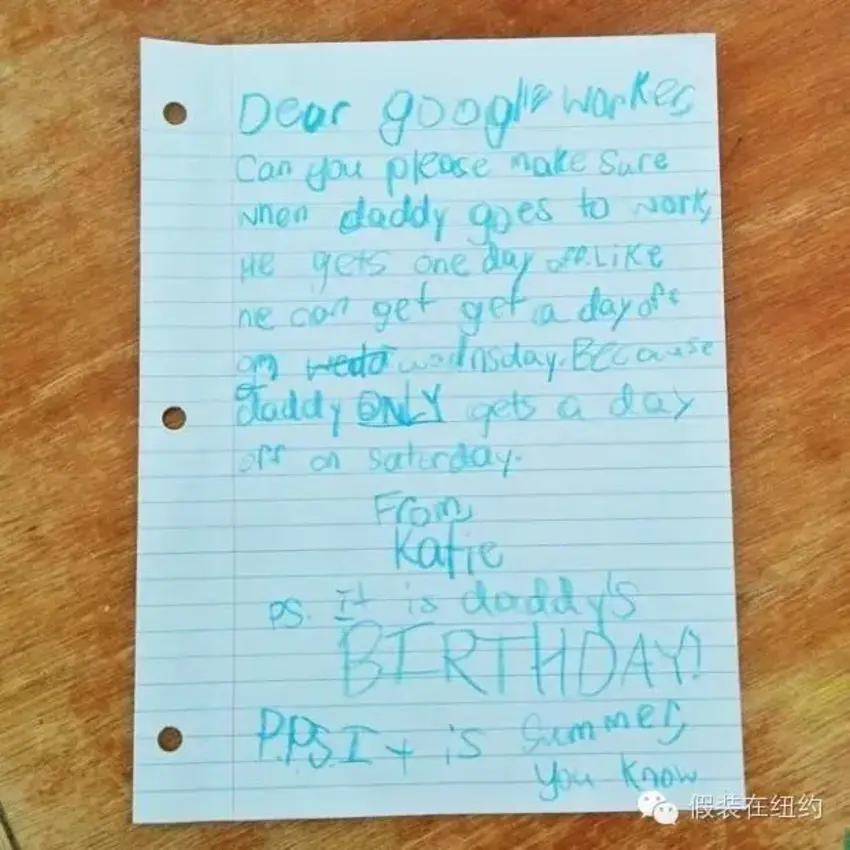 Dear google worker,
Can you please make sure
when daddy goes to work,
He gets one day off. Like
he can get get a day off
on wednsday. Because
daddy ONLY gets a day
off on saturday.
From,
Katie
PS. It is daddy's
BIRTHDAY!
P.P.S. It is summer,
you know
假装在纽约